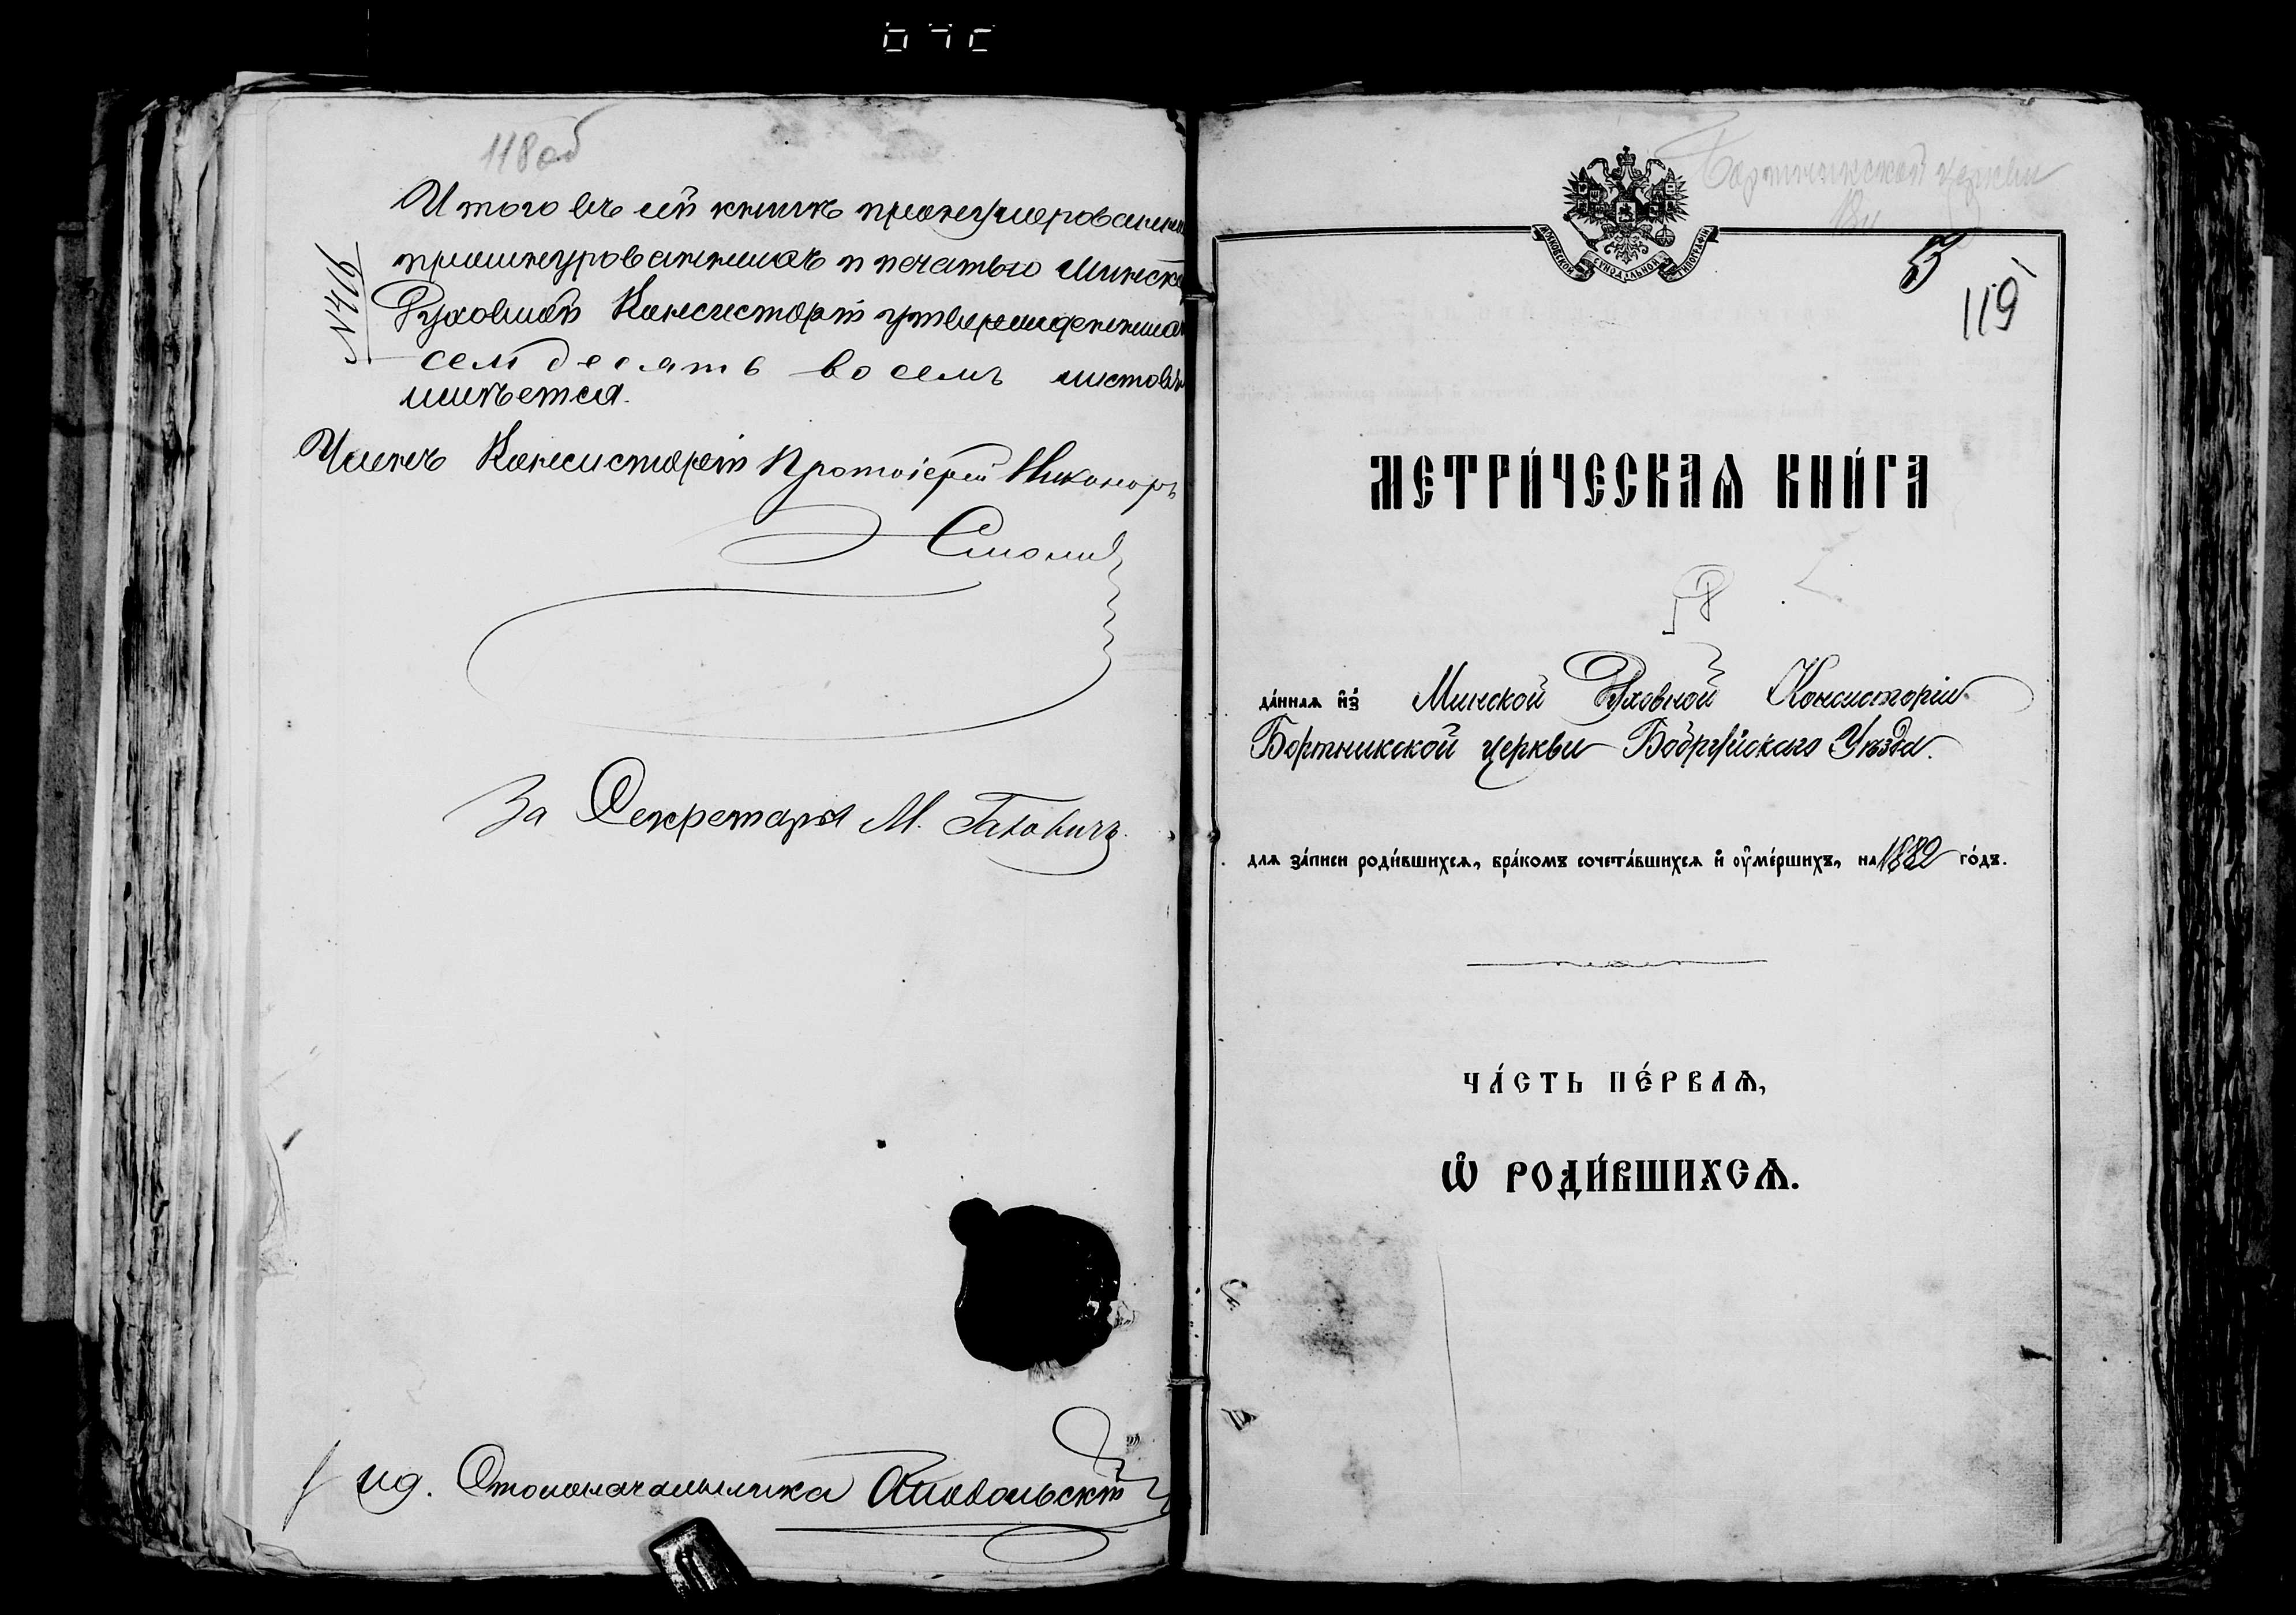 118 об
Итого въ сей книгѣ пронумерованныхъ
прошнурованныхъ и печатью Минской
Духовной Консисторіи утвержденныхъ
семдесятъ восемъ листовъ
имѣется.
№ 416
Членъ Консисторіи Протоіерей Никаноръ
Смолич
За Секретаря М.
ид. Столоначальника
Бортникской церкви
МОСКОВСКОЙ СѴНОДАЛЬНОЙ ТИПОГРАФІИ
119
МЕТРИ́ЧЕСКАѦ КНИ́ГА
да́ннаѧ и҆з̾ Минской Духовной Консисторіи
Бортникской церкви Бобруйскаго Уѣзда.
для за́писи роди́вшихсѧ, бра́комъ сочета́вшихсѧ и҆ ᲂу҆ме́ршихъ, на 1882 го́дъ.
ЧА́СТЬ ПЕ́РВАѦ,
Ѡ҆ РОДИ́ВШИХСѦ.